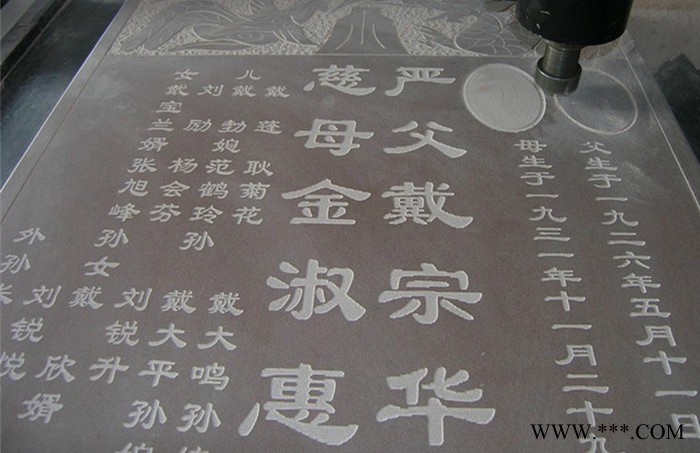 父生于一九二六年五月十一日
母生于一九三一年十一月二十九
严父戴宗华
慈母金淑惠
戴蓬耿菊花
儿戴勃媳范鹤玲孙
刘励杨会芬
女戴宝兰婿张旭峰孙女
戴大鸣孙
戴大平孙
刘锐升
戴欣婿
外孙
刘锐悦
WWW.***.COM